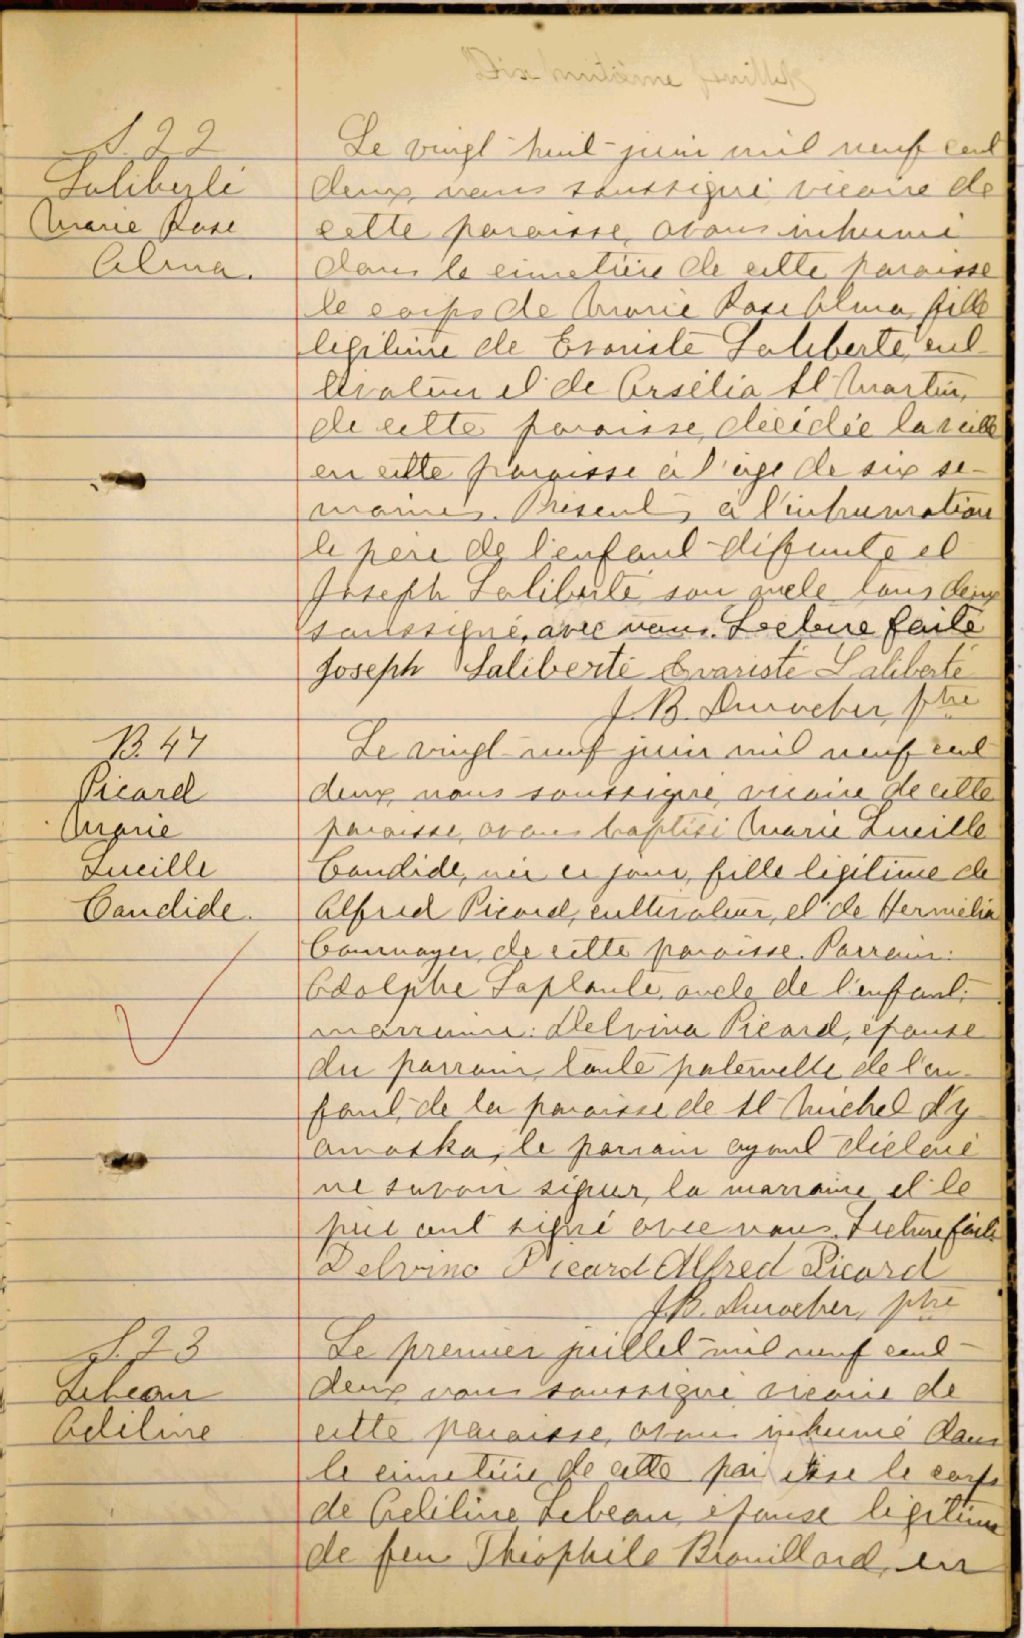 Dix huitième feuillet
S. 22
Laliberté
Marie Rose
Alma.
Le vingt-huit-juin mil neuf cent
deux, nous soussigné, vicaire de
cette paroisse, avons inhumé
dans le cimetière de cette paroisse
le corps de Marie Rose Alma, fille
légitime de Evariste Laliberté, cul-
tivateur et de Arsélia St Martin,
de cette paroisse, décédée la veille
en cette paroisse à l'âge de six se-
maines. Présents à l'inhumation
le père de l'enfant défunte et
Joseph Laliberté son oncle tous deux
soussignés, avec nous. Lecture faite
Joseph Laliberté Evariste Laliberté
J. B. Durocher, ptre
B. 47
Picard
Marie
Lucille
Candide.
Le vingt-neuf juin mil neuf cent
deux, nous soussigné, vicaire de cette
paroisse, avons baptisé Marie Lucille
Candide, née ce jour, fille légitime de
Alfred Picard, cultivateur, et de Hermélia
Cournoyer, de cette paroisse. Parrain:
Adolphe Laplante, oncle de l'enfant;
marraine: Delvina Picard, épouse
du parrain, tante paternelle de l'en-
fant, de la paroisse de St Michel d'Y-
amaska, le parrain ayant déclaré
ne savoir signer, la marraine et le
père ont signé avec nous. Lecture faite
Delvina Picard Alfred Picard
J. B. Durocher, ptre
S. 23
Lebeau
Adéline
Le premier juillet mil neuf cent-
deux, nous soussigné, vicaire de
cette paroisse, avons inhumé dans
le cimetière de cette paroisse le corps
de Adéline Lebeau, épouse légitime
de feu Théophile Brouillard, en